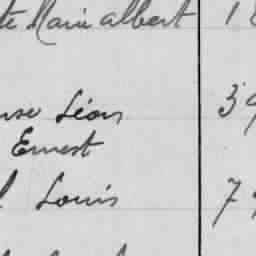 te Marie albert 1
use Léon 39
Ernest
l Louis 7